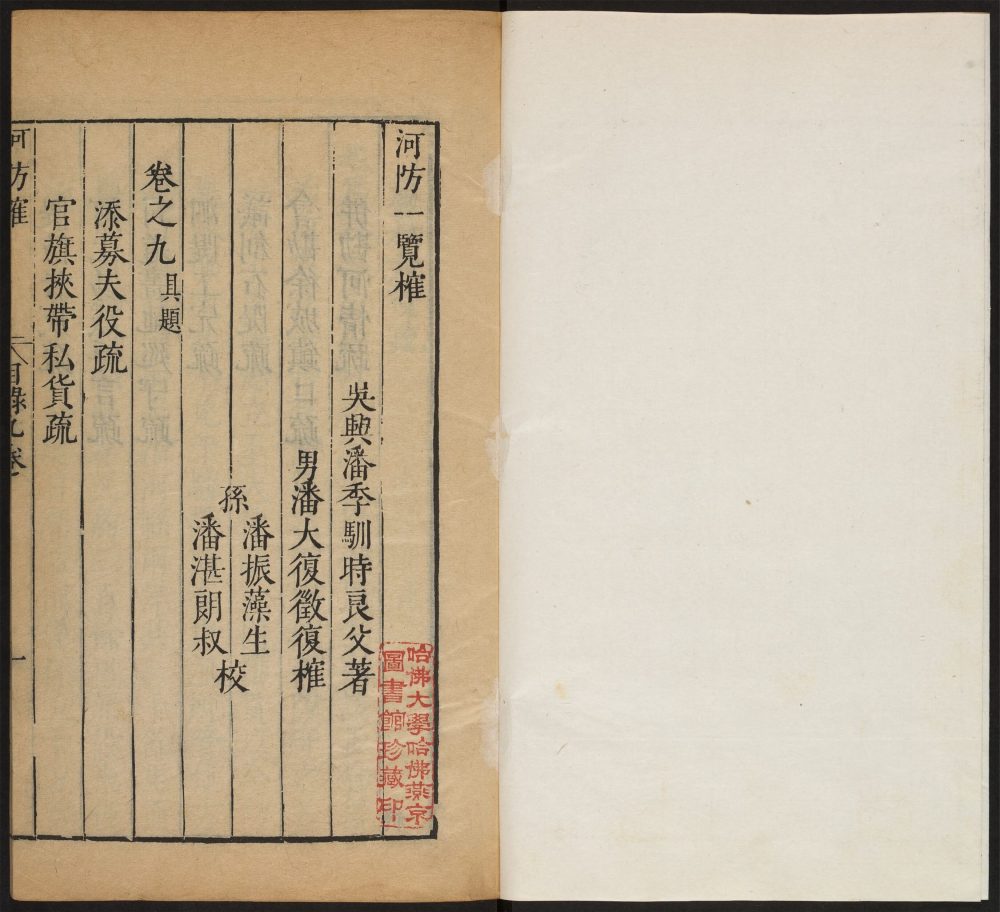 河防一覽榷
吳興潘季馴時良父著
男潘大復徵復榷
孫
潘振藻生
潘湛朗叔
校
卷之九 具題
添募夫役疏
官旗挾帶私貨疏
河防榷
目錄九卷
一
哈佛大學哈佛燕京
圖書館珍藏印